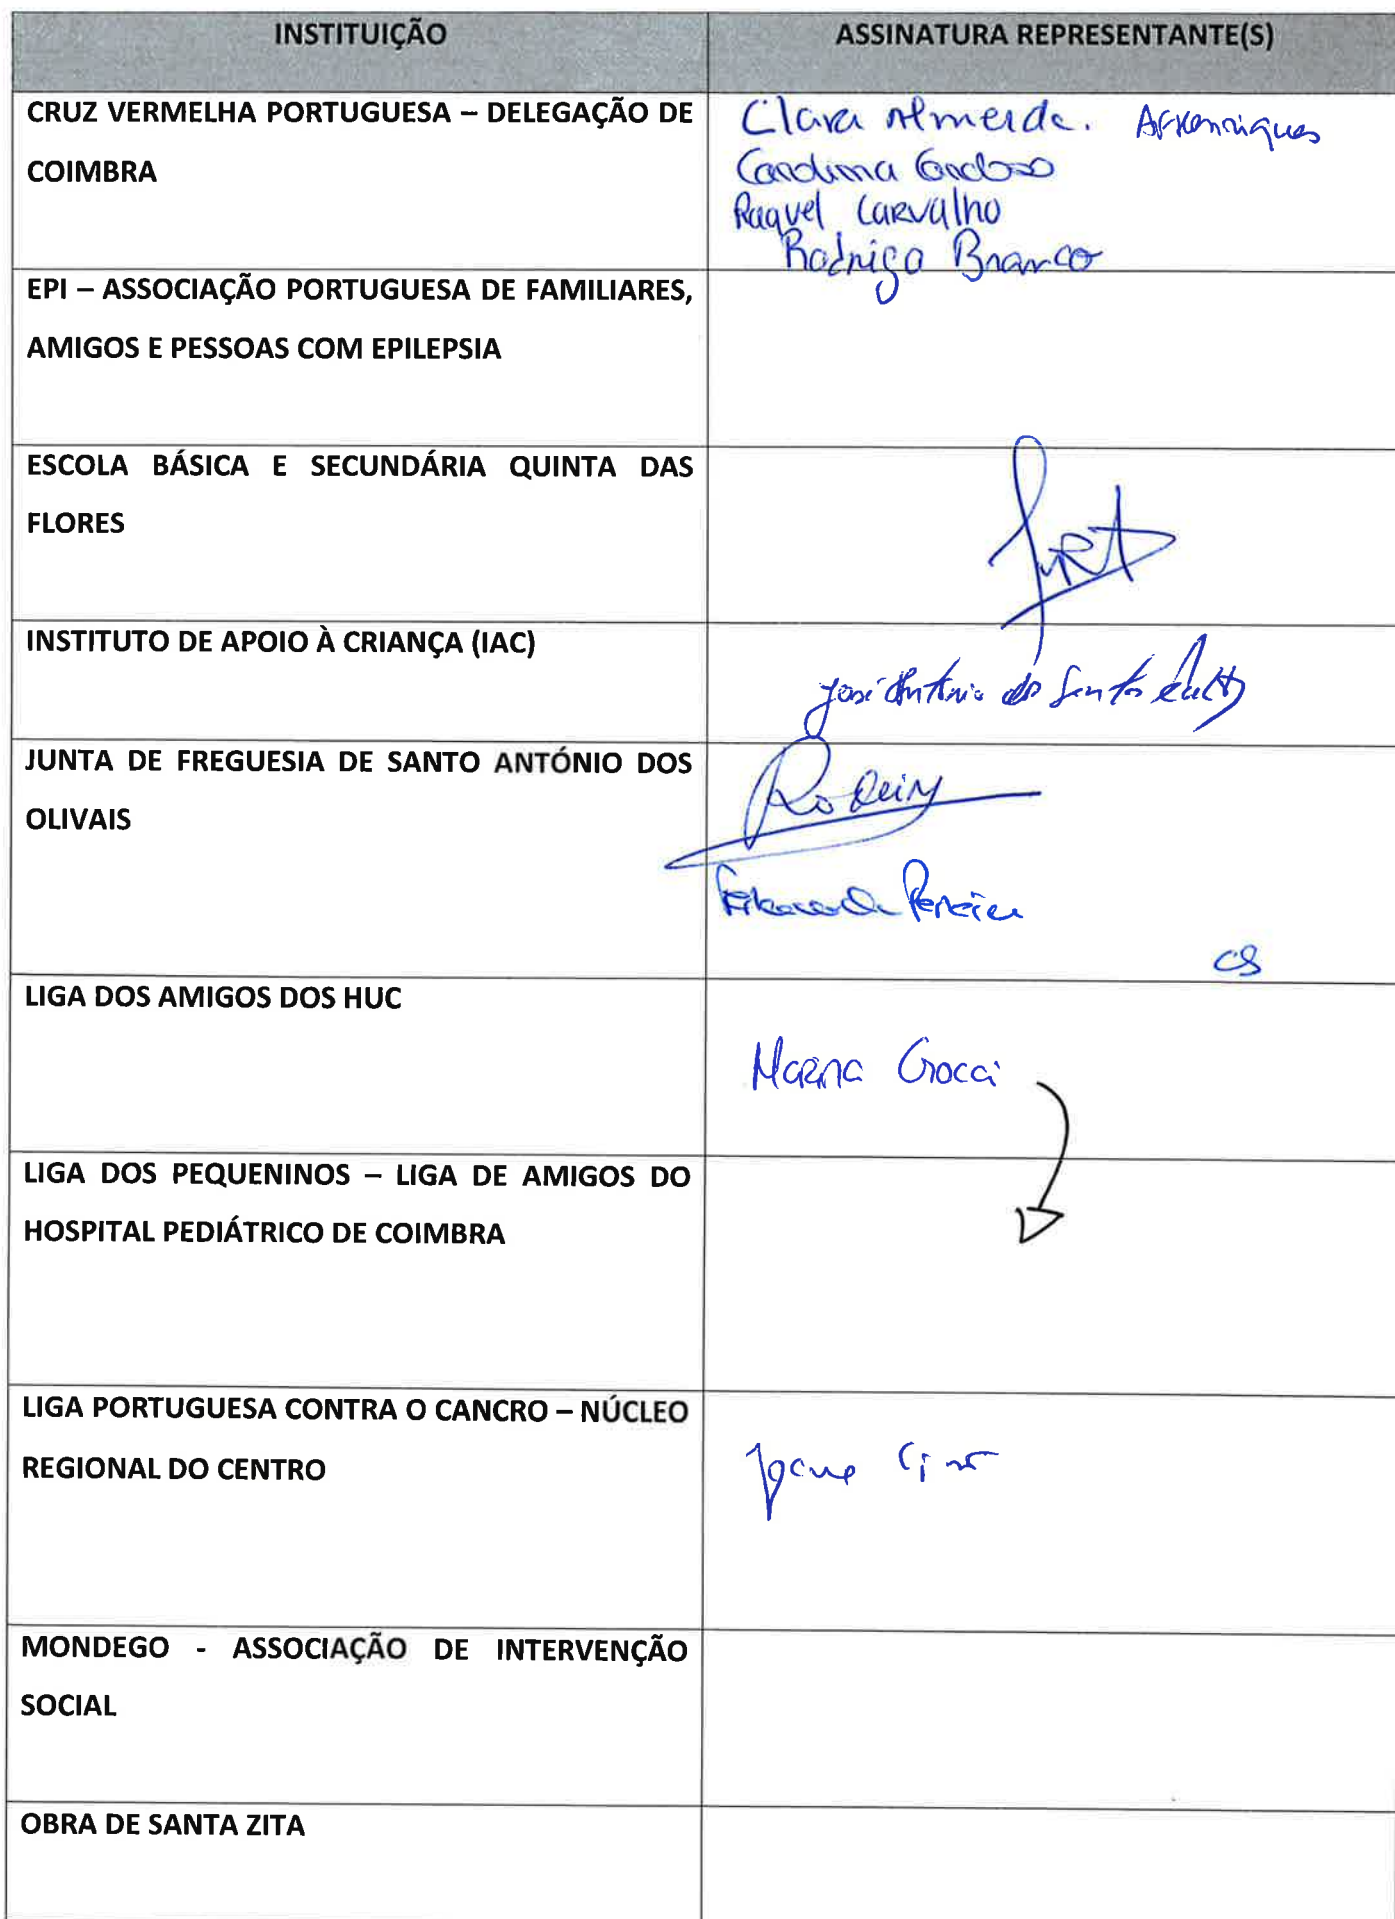 INSTITUIÇÃO
ASSINATURA REPRESENTANTE(S)
CRUZ VERMELHA PORTUGUESA – DELEGAÇÃO DE
COIMBRA
Clara Almeida.
Cardoso
Raquel Carvalho
Rodrigo Branco
EPI – ASSOCIAÇÃO PORTUGUESA DE FAMILIARES,
AMIGOS E PESSOAS COM EPILEPSIA
ESCOLA BÁSICA E SECUNDÁRIA QUINTA DAS
FLORES
INSTITUTO DE APOIO À CRIANÇA (IAC)
José António dos Santos
JUNTA DE FREGUESIA DE SANTO ANTÓNIO DOS
OLIVAIS
Pereira
CS
LIGA DOS AMIGOS DOS HUC
Marina Crocci
LIGA DOS PEQUENINOS – LIGA DE AMIGOS DO
HOSPITAL PEDIÁTRICO DE COIMBRA
LIGA PORTUGUESA CONTRA O CANCRO – NÚCLEO
REGIONAL DO CENTRO
MONDEGO - ASSOCIAÇÃO DE INTERVENÇÃO
SOCIAL
OBRA DE SANTA ZITA